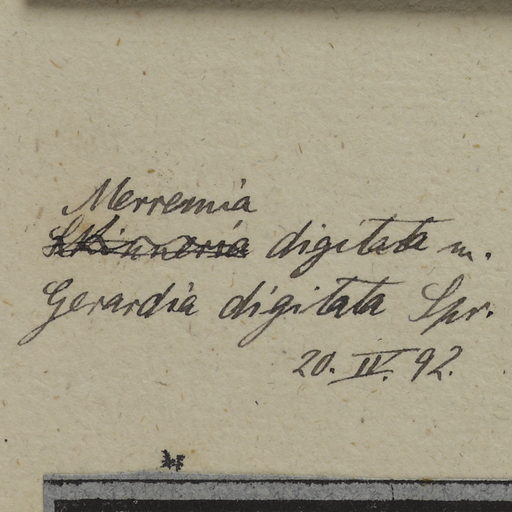 Merremia
Skinneria digitata m.
Gerardia digitata Spr.
20. IV. 92.